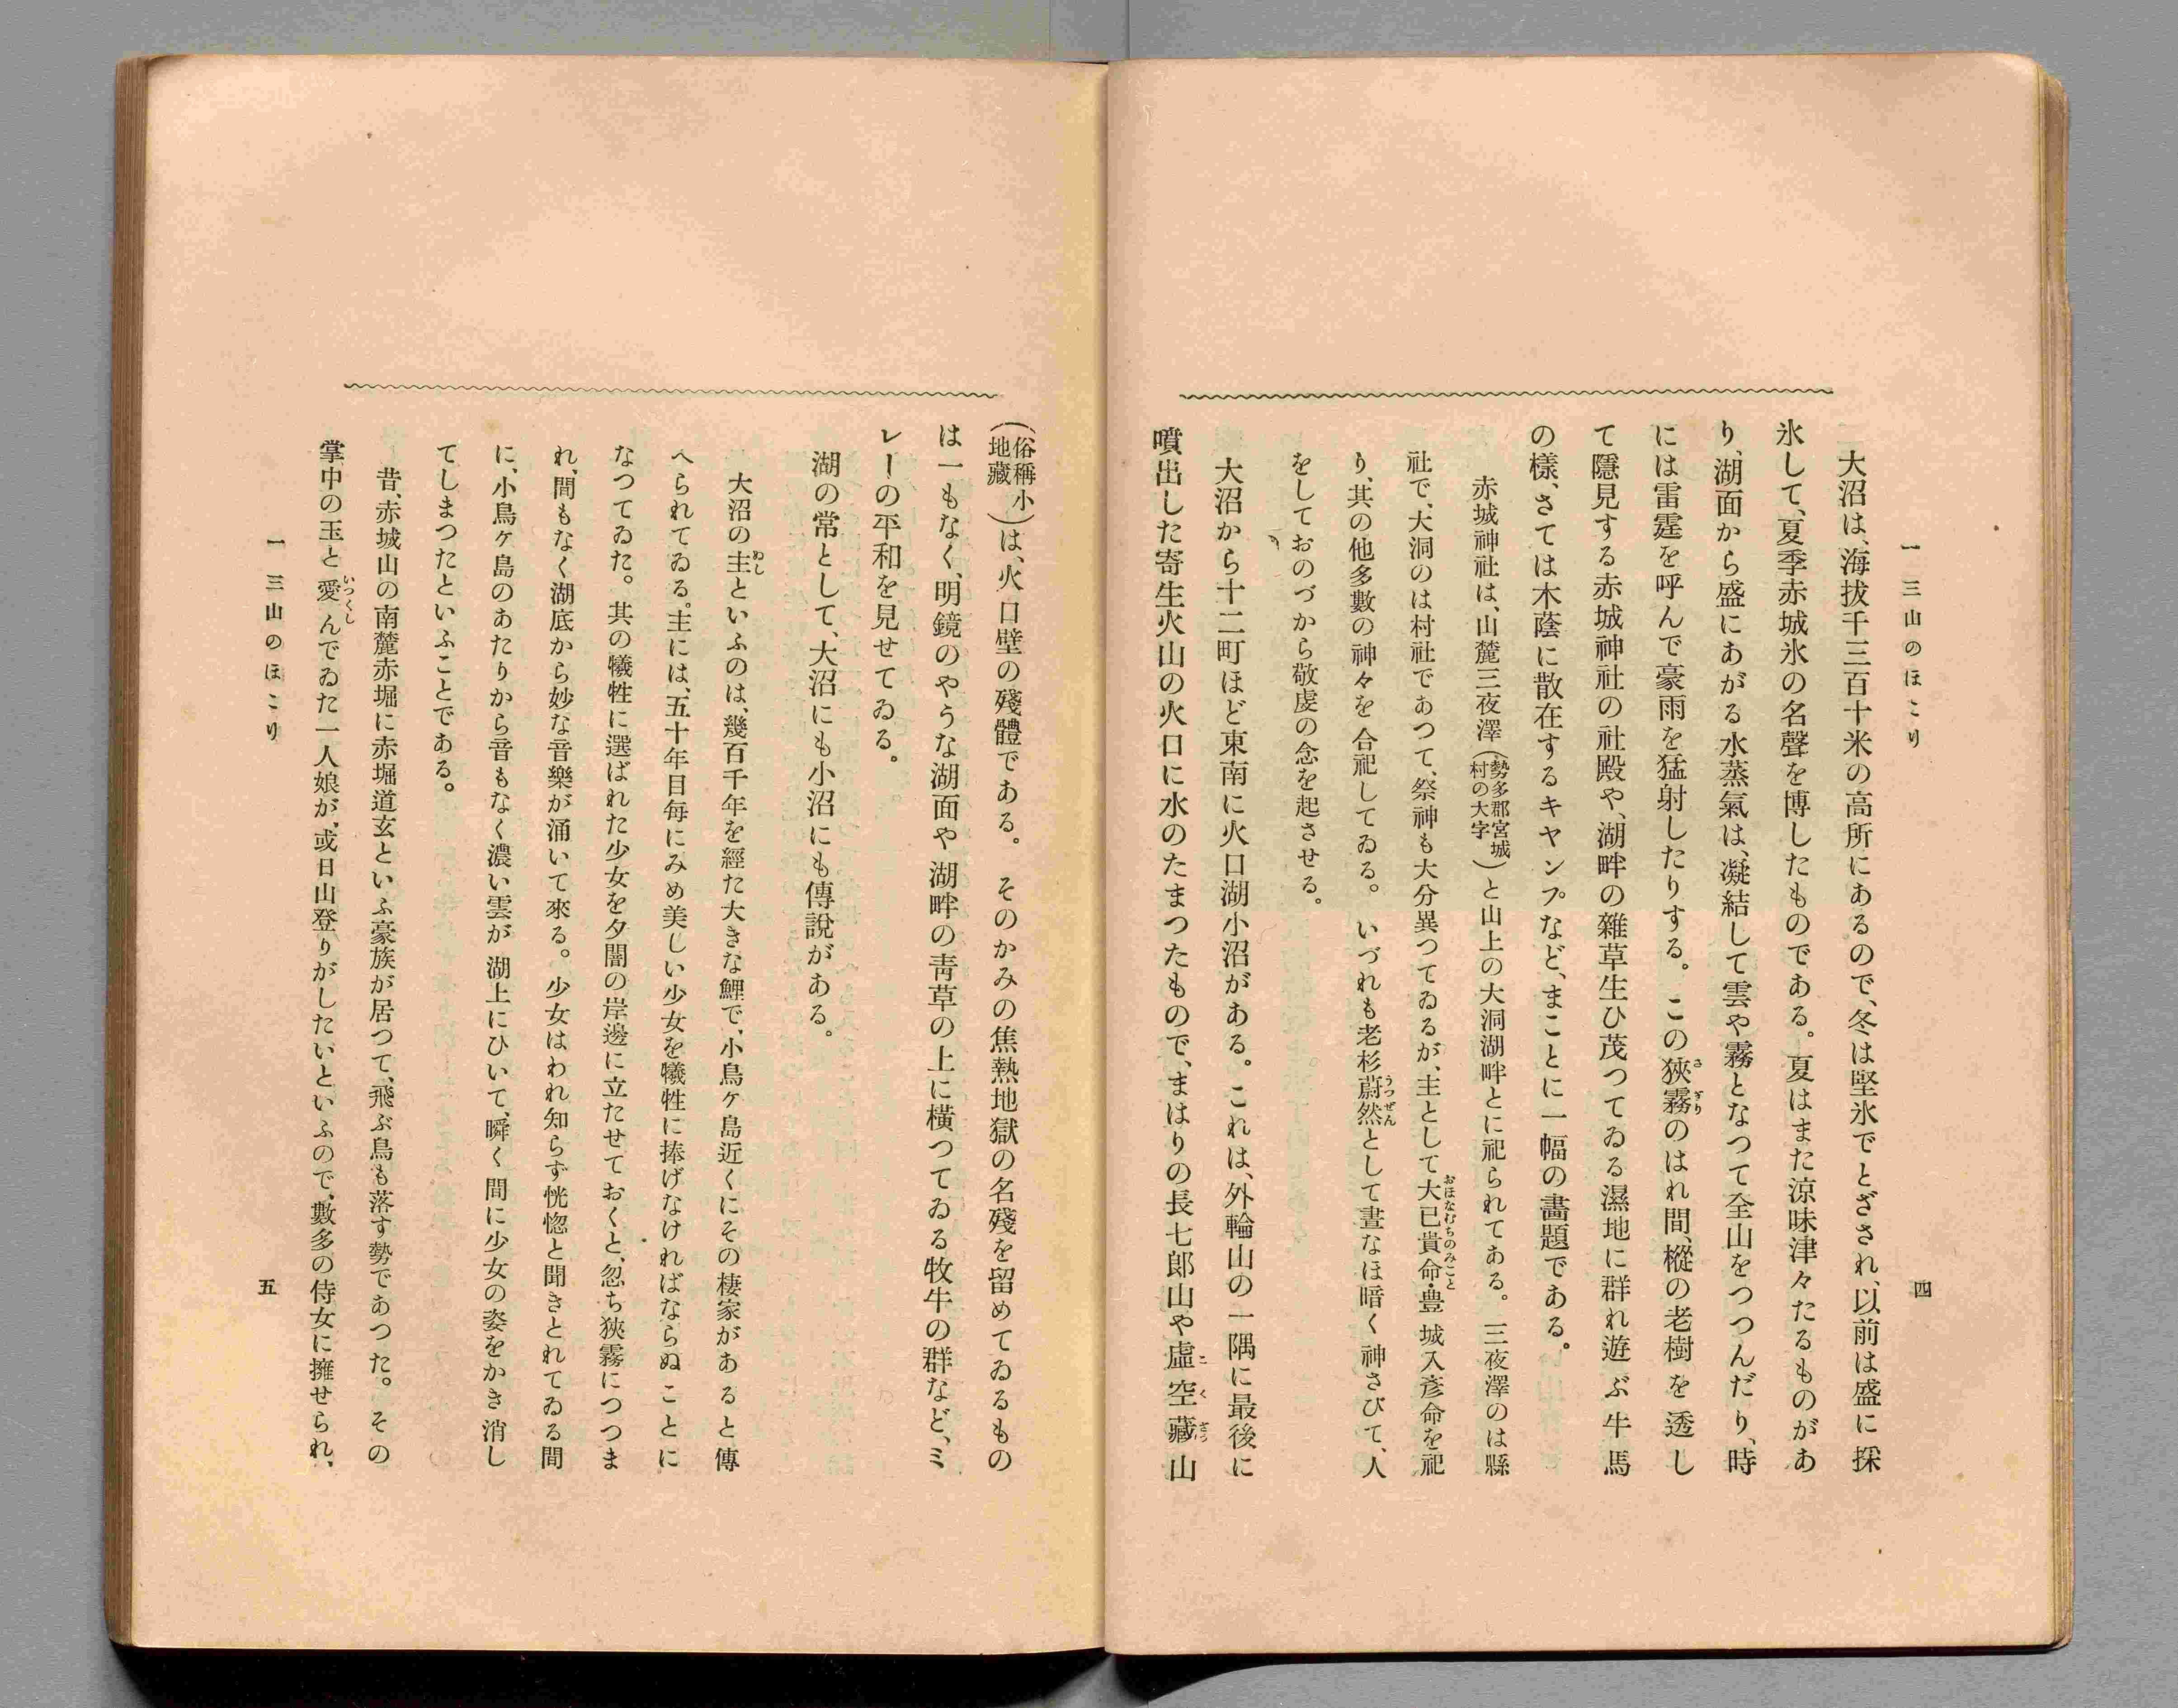 一 三山のほこり
四
大沼は、海拔千三百十米の高所にあるので、冬は堅氷でとざされ、以前は盛に採
氷して、夏季赤城氷の名聲を博したものである。夏はまた涼味津々たるものがあ
り、湖面から盛にあがる水蒸氣は、凝結して雲や霧となつて全山をつつんだり、時
には雷霆を呼んで豪雨を猛射したりする。この狹霧のはれ間、樅の老樹を透し
て隱見する赤城神社の社殿や、湖畔の雜草生ひ茂つてゐる濕地に群れ遊ぶ牛馬
の樣、さては木蔭に散在するキャンプなど、まことに一幅の畫題である。
赤城神社は、山麓三夜澤(勢多郡宮城村の大字)と山上の大洞湖畔とに祀られてある。三夜澤のは縣
社で、大洞のは村社であつて、祭神も大分異つてゐるが、主として大已貴命・豊城入彥命を祀
り、其の他多數の神々を合祀してゐる。いづれも老杉蔚然として晝なほ暗く神さびて、人
をしておのづから敬虔の念を起させる。
大沼から十二町ほど東南に火口湖小沼がある。これは、外輪山の一隅に最後に
噴出した寄生火山の火口に水のたまつたもので、まはりの長七郞山や虛空藏山
(俗稱小地藏)は、火口壁の殘體である。そのかみの焦熱地獄の名殘を留めてゐるもの
は一もなく、明鏡のやうな湖面や湖畔の靑草の上に橫つてゐる牧牛の群など、ミ
レーの平和を見せてゐる。
湖の常として、大沼にも小沼にも傳說がある。
大沼の主といふのは、幾百千年を經た大きな鯉で、小鳥ヶ島近くにその棲家があると傳
へられてゐる。主には、五十年目每にみめ美しい少女を犧牲に捧げなければならぬことに
なつてゐた。其の犧牲に選ばれた少女を夕闇の岸邊に立たせておくと、忽ち狹霧につつま
れ、間もなく湖底から妙な音樂が涌いて來る。少女はわれ知らず恍惚と聞きとれてゐる間
に、小鳥ヶ島のあたりから音もなく濃い雲が湖上にひいて、瞬く間に少女の姿をかき消し
てしまつたといふことである。
昔、赤城山の南麓赤堀に赤堀道玄といふ豪族が居つて、飛ぶ鳥も落す勢であつた。その
掌中の玉と愛んでゐた一人娘が、或日山登りがしたいといふので、數多の侍女に擁せられ、
一 三山のほこり
五